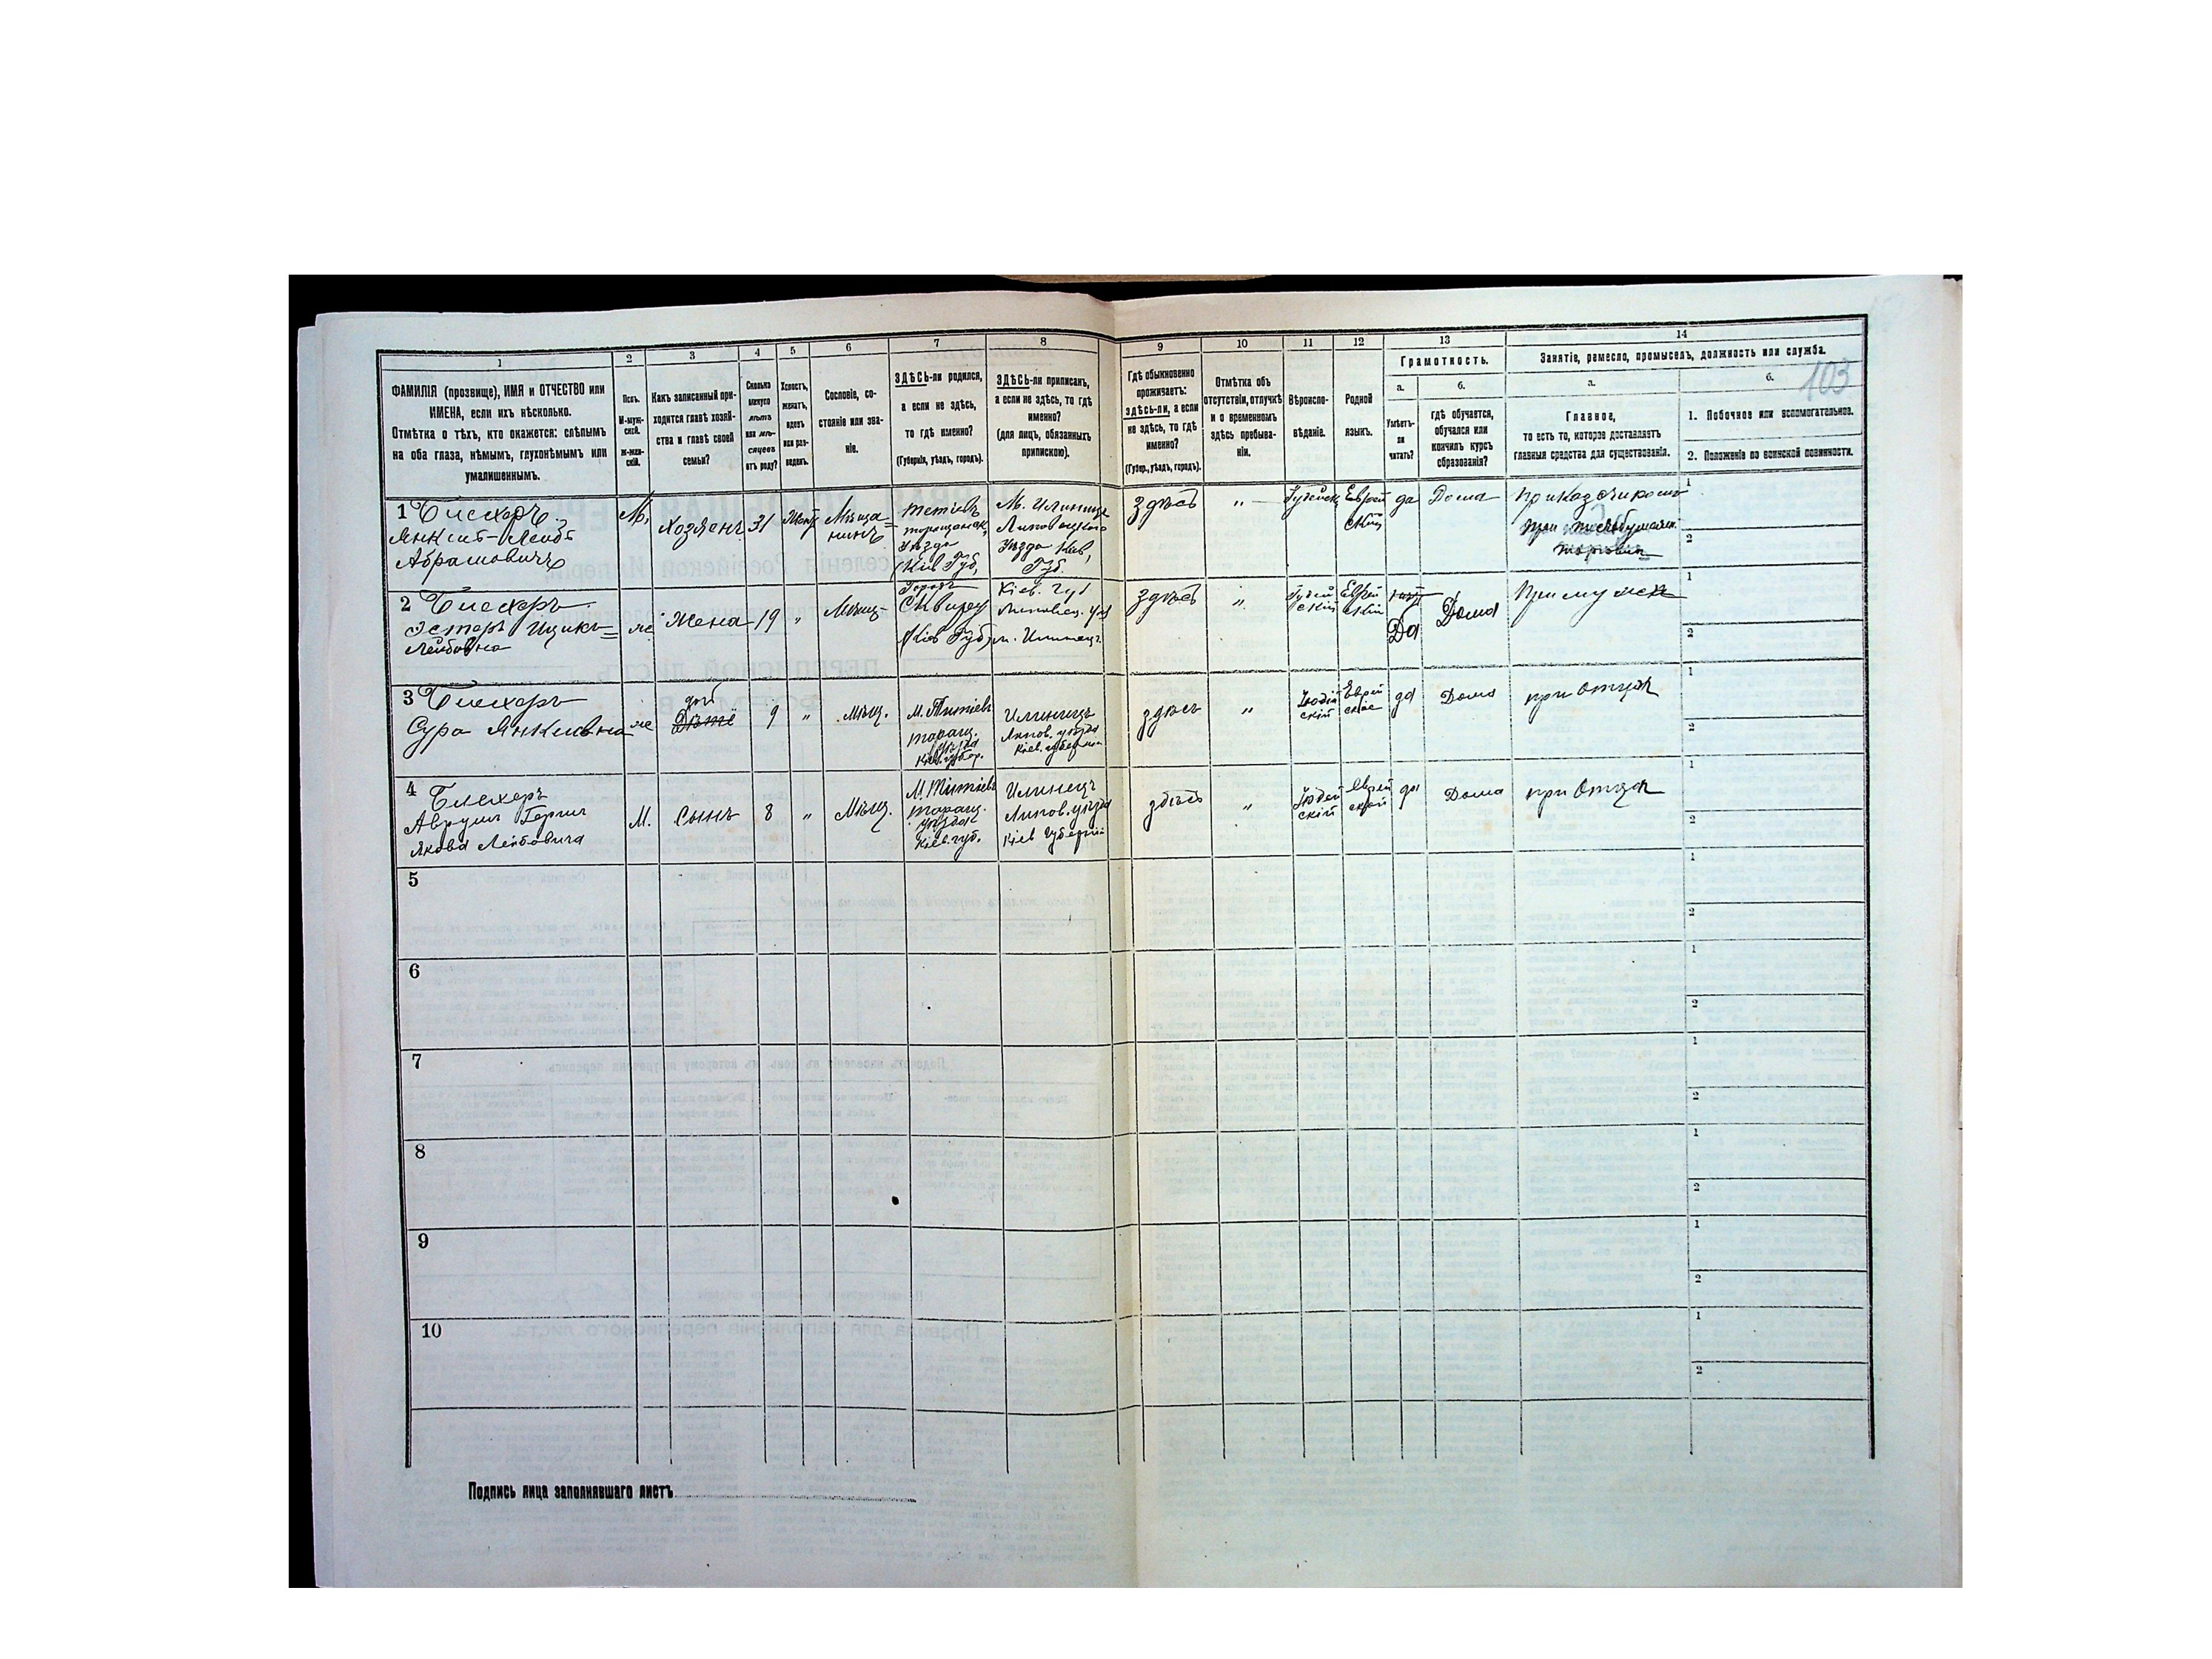 1
2
3
4
5
6
7
8
9
10
11
12
13
14
103
ФАМИЛІЯ (прозвище), ИМЯ и ОТЧЕСТВО или
ИМЕНА, если ихъ нѣсколько.
Отмѣтка о тѣхъ, кто окажется: слѣпымъ
на оба глаза, нѣмымъ, глухонѣмымъ или
умалишеннымъ.
Полъ.
М-муж-
ской.
Ж-жен-
скій.
Какъ записанный при-
ходится главѣ хозяй-
ства и главѣ своей
семьи?
Сколько
минуло
лѣтъ
или мѣ-
сяцевъ
отъ роду?
Холостъ,
женатъ,
вдовъ
или раз-
веденъ.
Сословіе, со-
стояніе или зва-
ніе.
ЗДѢСЬ-ли родился,
а если не здѣсь,
то гдѣ именно?
(Губернія, уѣздъ, городъ).
ЗДѢСЬ-ли приписанъ,
а если не здѣсь, то гдѣ
именно?
(для лицъ, обязанныхъ
припискою).
Гдѣ обыкновенно
проживаетъ:
здѣсь-ли, а если
не здѣсь, то гдѣ
именно?
(Губер., уѣздъ, городъ).
Отмѣтка объ
отсутствіи, отлучкѣ
и о временномъ
здѣсь пребыва-
ніи.
Вѣроиспо-
вѣданіе.
Родной
языкъ.
Грамотность.
а.
Умѣетъ-
ли
читать?
б.
гдѣ обучается,
обучался или
кончилъ курсъ
образованія?
Занятіе, ремесло, промыселъ, должность или служба.
а.
Главное,
то есть то, которое доставляетъ
главныя средства для существованія.
б.
1. Побочное или вспомогательное.
2. Положеніе по воинской повинности.
1 Блехеръ
Янкель-Лейбъ
Абрамовичъ
М.
Хозяенъ
31
Жен.
Мѣща=
нинъ
Тетіевъ
таращанск.
Уѣзда
Кіев Губ,
М. Илинице
Липовецкого
Уѣзда Кіев,
Губ.
Здѣсь
"
Іудейск
Еврей
скій
да
Дома
Приказчикомъ
1
2
2 Блехеръ
Эстеръ Ицикъ=
Лейбовна
же
Жена
19
"
Мѣщ-
Городъ
Сквиру
(Кіев Губ)
Кіев. Губ
Липовец. уѣз
м. Илинецъ
Здѣсь
"
Іудей
скій
Еврей
скій
Да
Дома
При мужѣ
1
2
3 Блехеръ
Сура Янкилевна
же
доч
Дѣтѣ
9
"
Мѣщ.
М. Титіевъ
таращ.
уѣзда
Кіев. губер.
Илинецъ
Липов. уѣзда
Кіев. губерніи
здѣсь
"
Іюдей
скій
Еврей
скіе
да
Дома
при Отцѣ
1
2
4 Блехеръ
Аврумъ Гершъ
Якова Лейбовича
М.
Сынъ
8
"
Мѣщ.
М. Титіевъ
таращ.
уѣзда
Кіев. губ.
Илинецъ
Липов. уѣзда
Кіев Губерніи
здѣсь
"
Іюдей
скій
Еврей
скій
да
Дома
при Отцѣ
1
2
5
1
2
6
1
2
7
1
2
8
1
2
9
1
2
10
1
2
Подпись лица заполнявшаго листъ